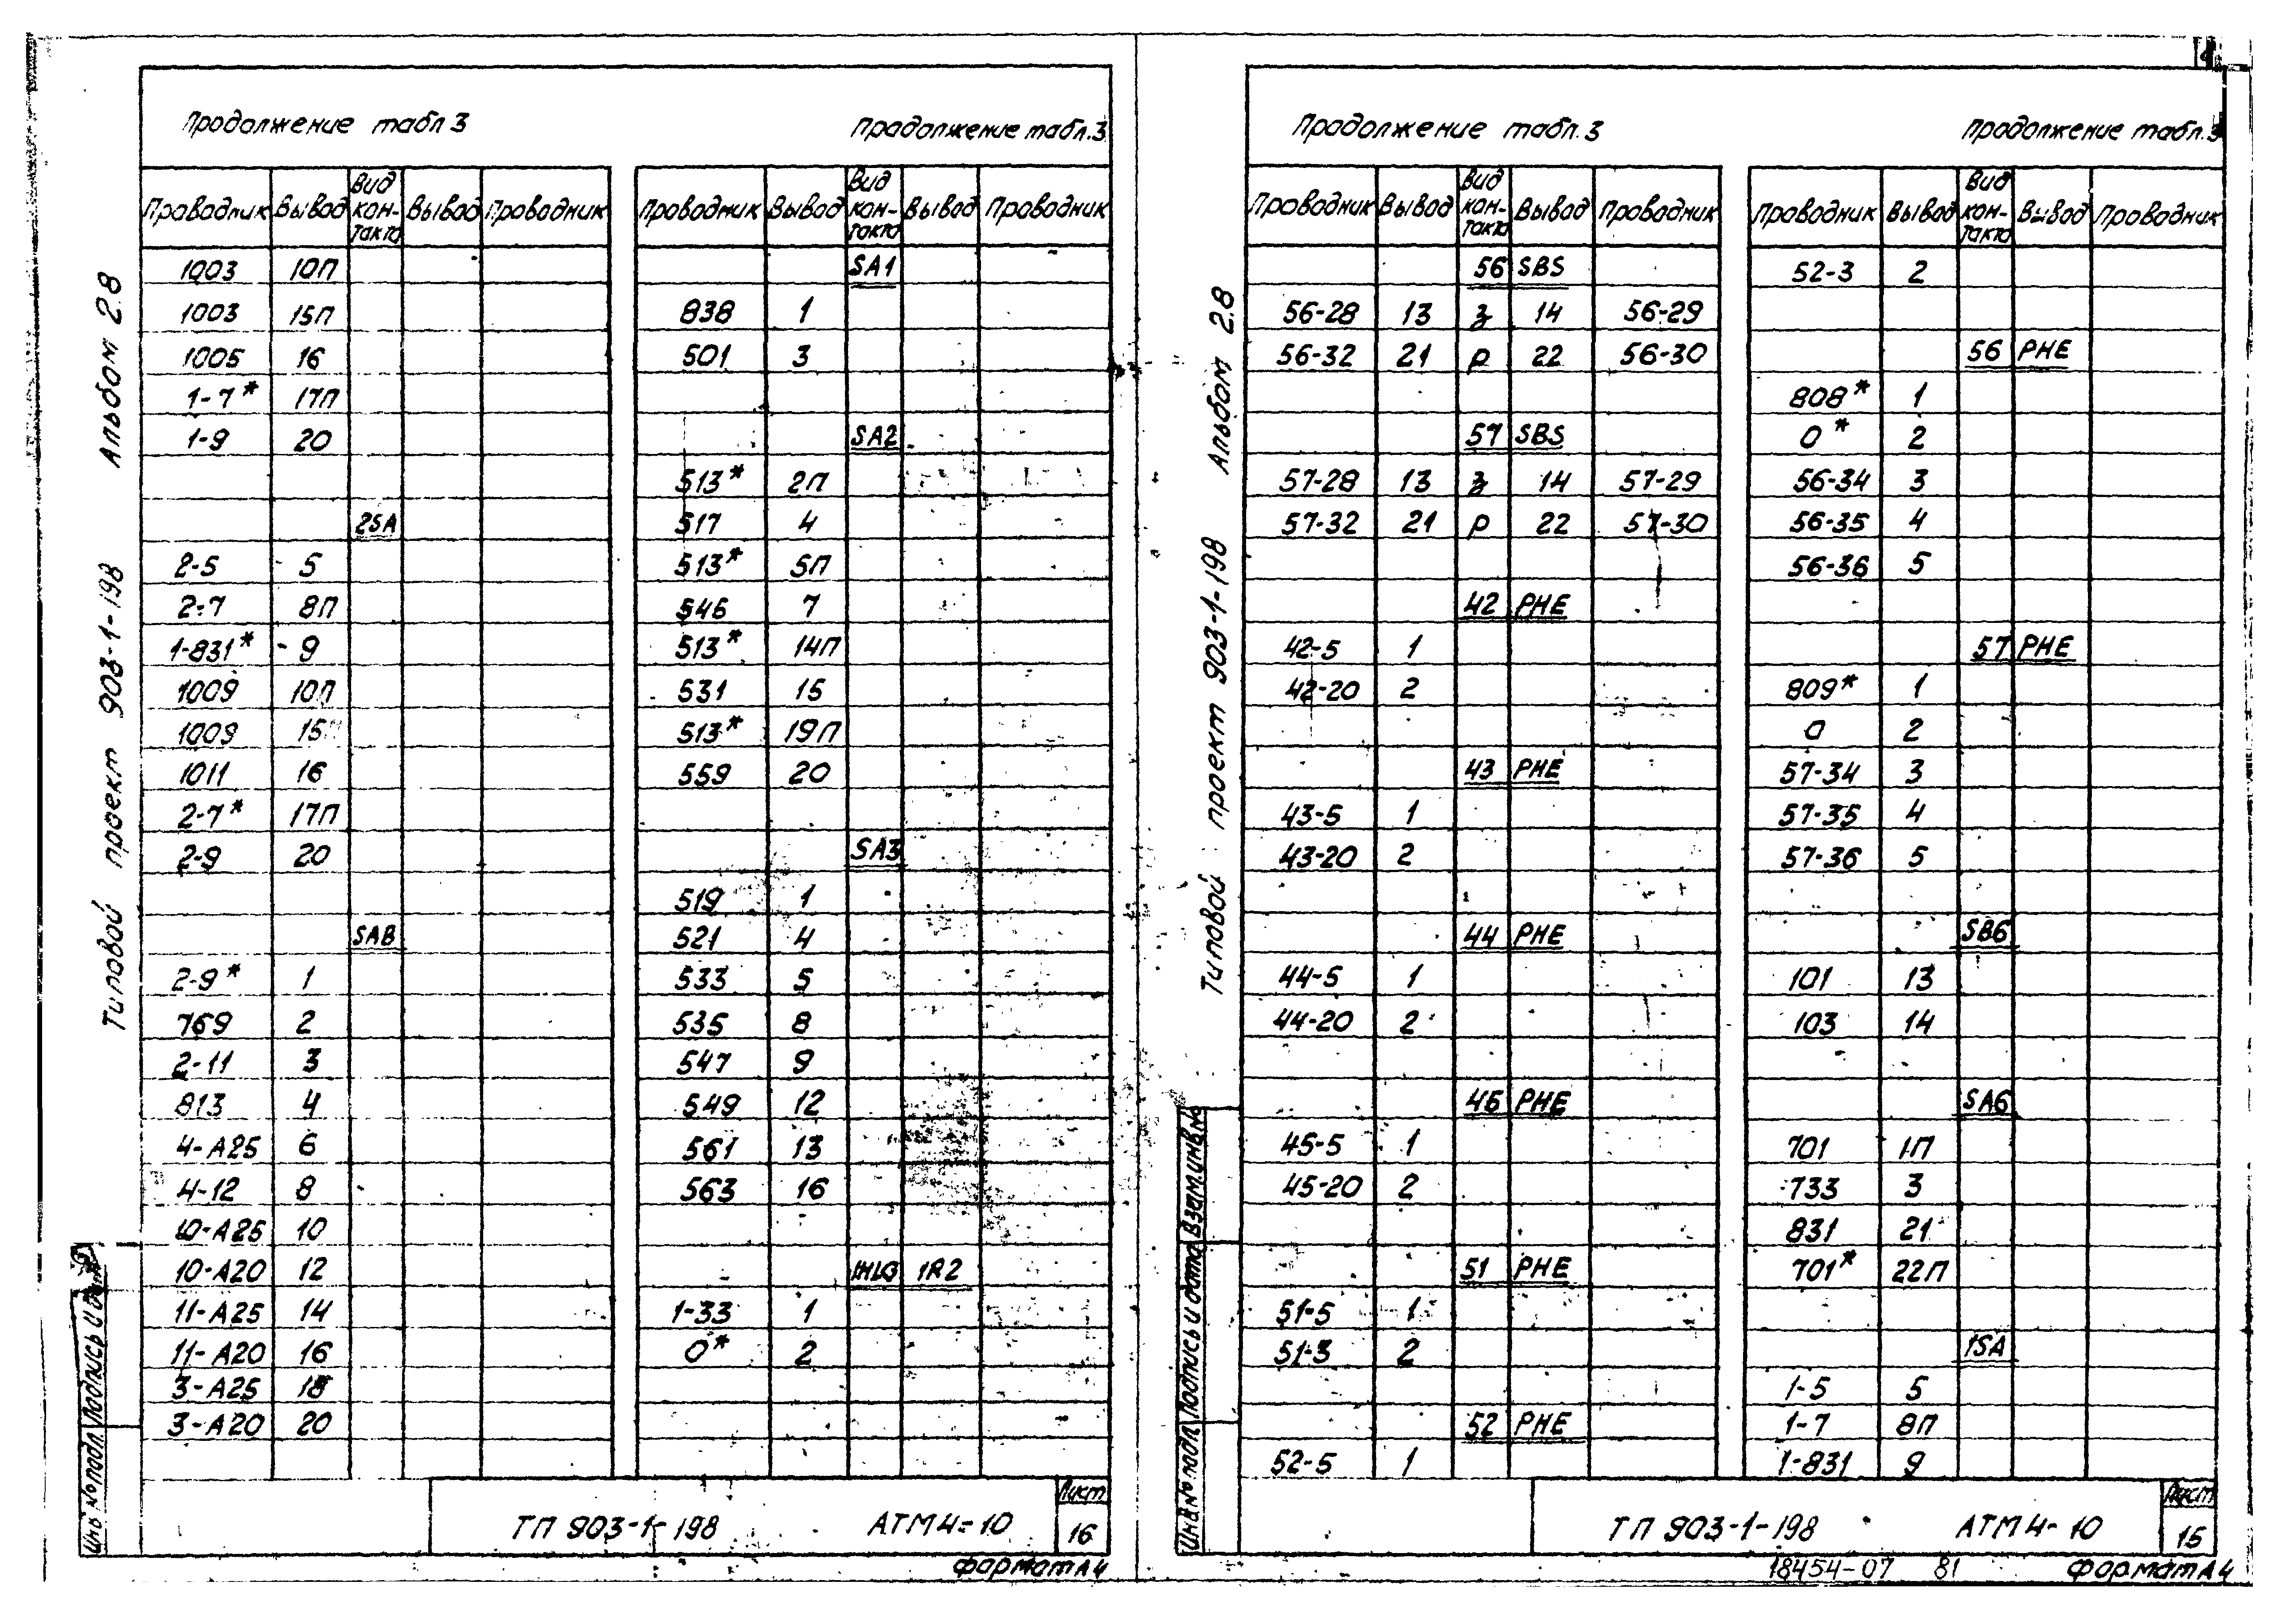 Продолжение табл 3
Проводник Вывод Вид контакта Вывод Проводник
1003 10П
1003 15П
1005 16
1-7* 17П
1-9 20
2SA
2-5 5
2-7 8П
1-831* 9
1009 10П
1009 15
1011 16
2-7* 17П
2-9 20
SAB
2-9* 1
769 2
2-11 3
813 4
4-А25 6
4-12 8
10-А25 10
10-А20 12
11-А25 14
11-А20 16
3-А25 18
3-А20 20
Продолжение табл.3
Проводник Вывод Вид контакта Вывод Проводник
SA1
838 1
501 3
SA2
513* 2П
517 4
513* 5П
545 7
513* 14П
531 15
513* 19П
559 20
SA3
519 1
521 4
533 5
535 8
547 9
549 12
561 13
563 16
1HLG 1R2
1-33 1
0* 2
Альбом 2.8
Типовой проект 903-1-198
Инв № подл. Подпись и дата
ТП 903-1-198 АТМ4-10
Лист
16
Формат А4
Продолжение табл.3
Проводник Вывод Вид контакта Вывод Проводник
56 SBS
56-28 13 з 14 56-29
56-32 21 р 22 56-30
57 SBS
57-28 13 з 14 57-29
57-32 21 р 22 57-30
42 PHE
42-5 1
42-20 2
43 PHE
43-5 1
43-20 2
44 PHE
44-5 1
44-20 2
45 PHE
45-5 1
45-20 2
51 PHE
51-5 1
51-3 2
52 PHE
52-5 1
Продолжение табл.3
Проводник Вывод Вид контакта Вывод Проводник
52-3 2
56 PHE
808* 1
0* 2
56-34 3
56-35 4
56-36 5
57 PHE
809* 1
0 2
57-34 3
57-35 4
57-36 5
SB6
101 13
103 14
SA6
701 1П
733 3
831 21
701* 22П
1SA
1-5 5
1-7 8П
1-831 9
Альбом 2.8
Типовой проект 903-1-198
Инв № подл. Подпись и дата Взам.инв.№
ТП 903-1-198 АТМ4-10
Лист
15
18454-07 81 Формат А4